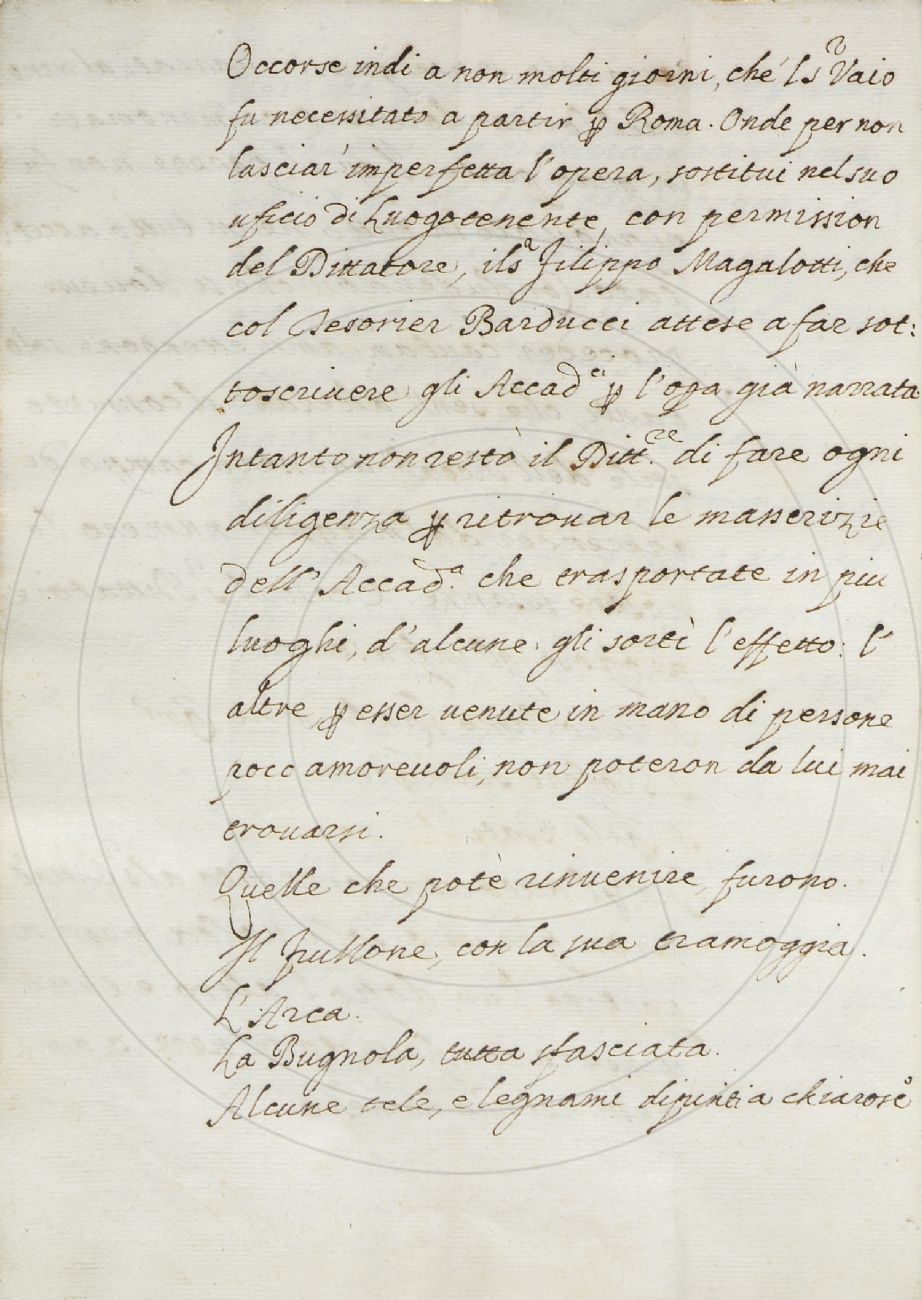 Occorse indi a non molti giorni, ché l Sʳ Vaio
fu necessitato a partir ꝑ Roma. Onde per non
lasciar' imperfetta l'opera, sostitui nel suo
uficio di Luogotenente, con permission
del Dittatore, il Sʳ Filippo Magalotti, che
col Tesorier Barducci attese a far sot:
toscrivere gli Accadᶜⁱ ꝑ l'oꝑa già narrata
Intanto non restò il Dittʳᵉ. di fare ogni
diligenza ꝑ ritrouar le masserizie
dell' Accadᵃ. che trasportate in piu
luoghi, d'alcune gli sortì l'effetto: l'
altre ꝑ esser uenute in mano di persone
poco amoreuoli, non poteron da lui mai
trouarsi.
Quelle che potè rinuenire, furono.
Il frullone, con la sua tramoggia.
L'Arca.
La Bugnola, tutta sfasciata.
Alcune tele, e legnami dipinti a chiaroscᵒ